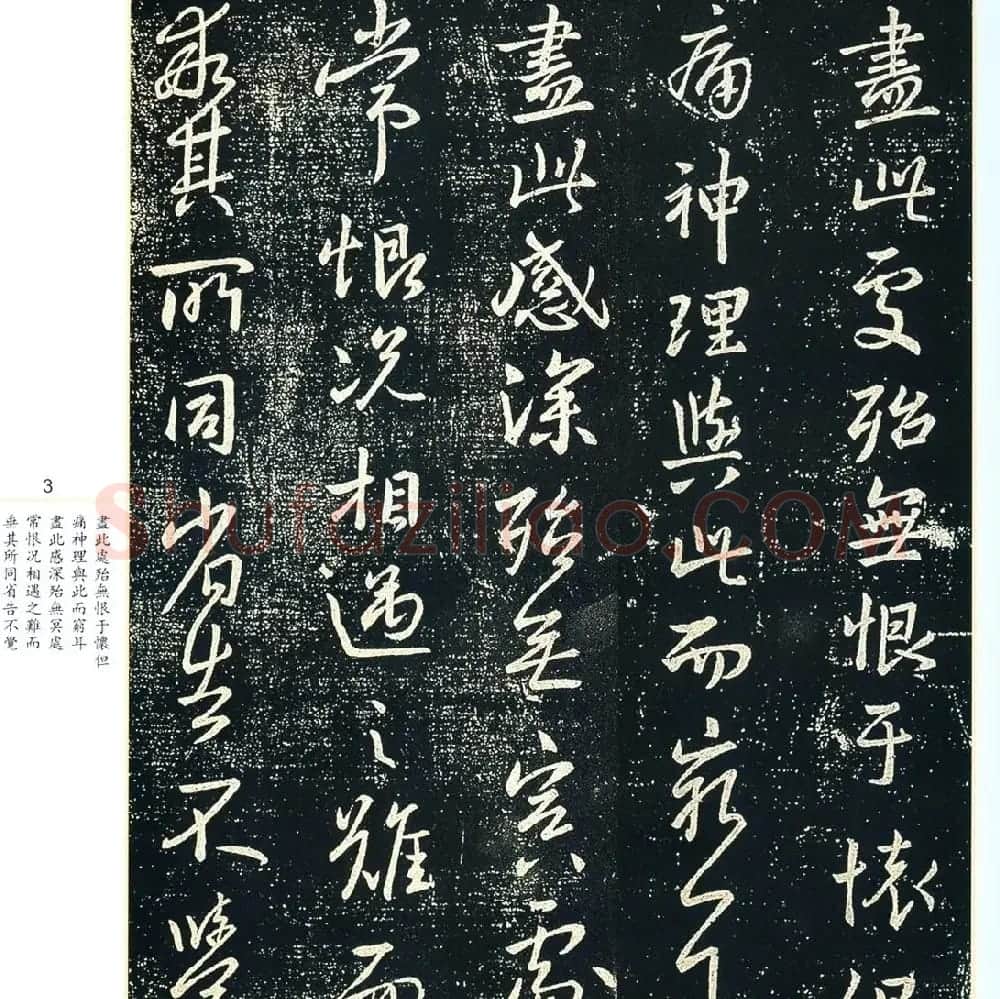 盡此處殆無恨于懷但
痛神理與此而窮耳
盡此感深殆無冥處
常恨況相遇之難而
乖其所同省告不覺
shufaziliao.COM
3
盡此處殆無恨于懷但
痛神理與此而窮耳
盡此感深殆無冥處
常恨况相遇之難而
乖其所同省告不覺